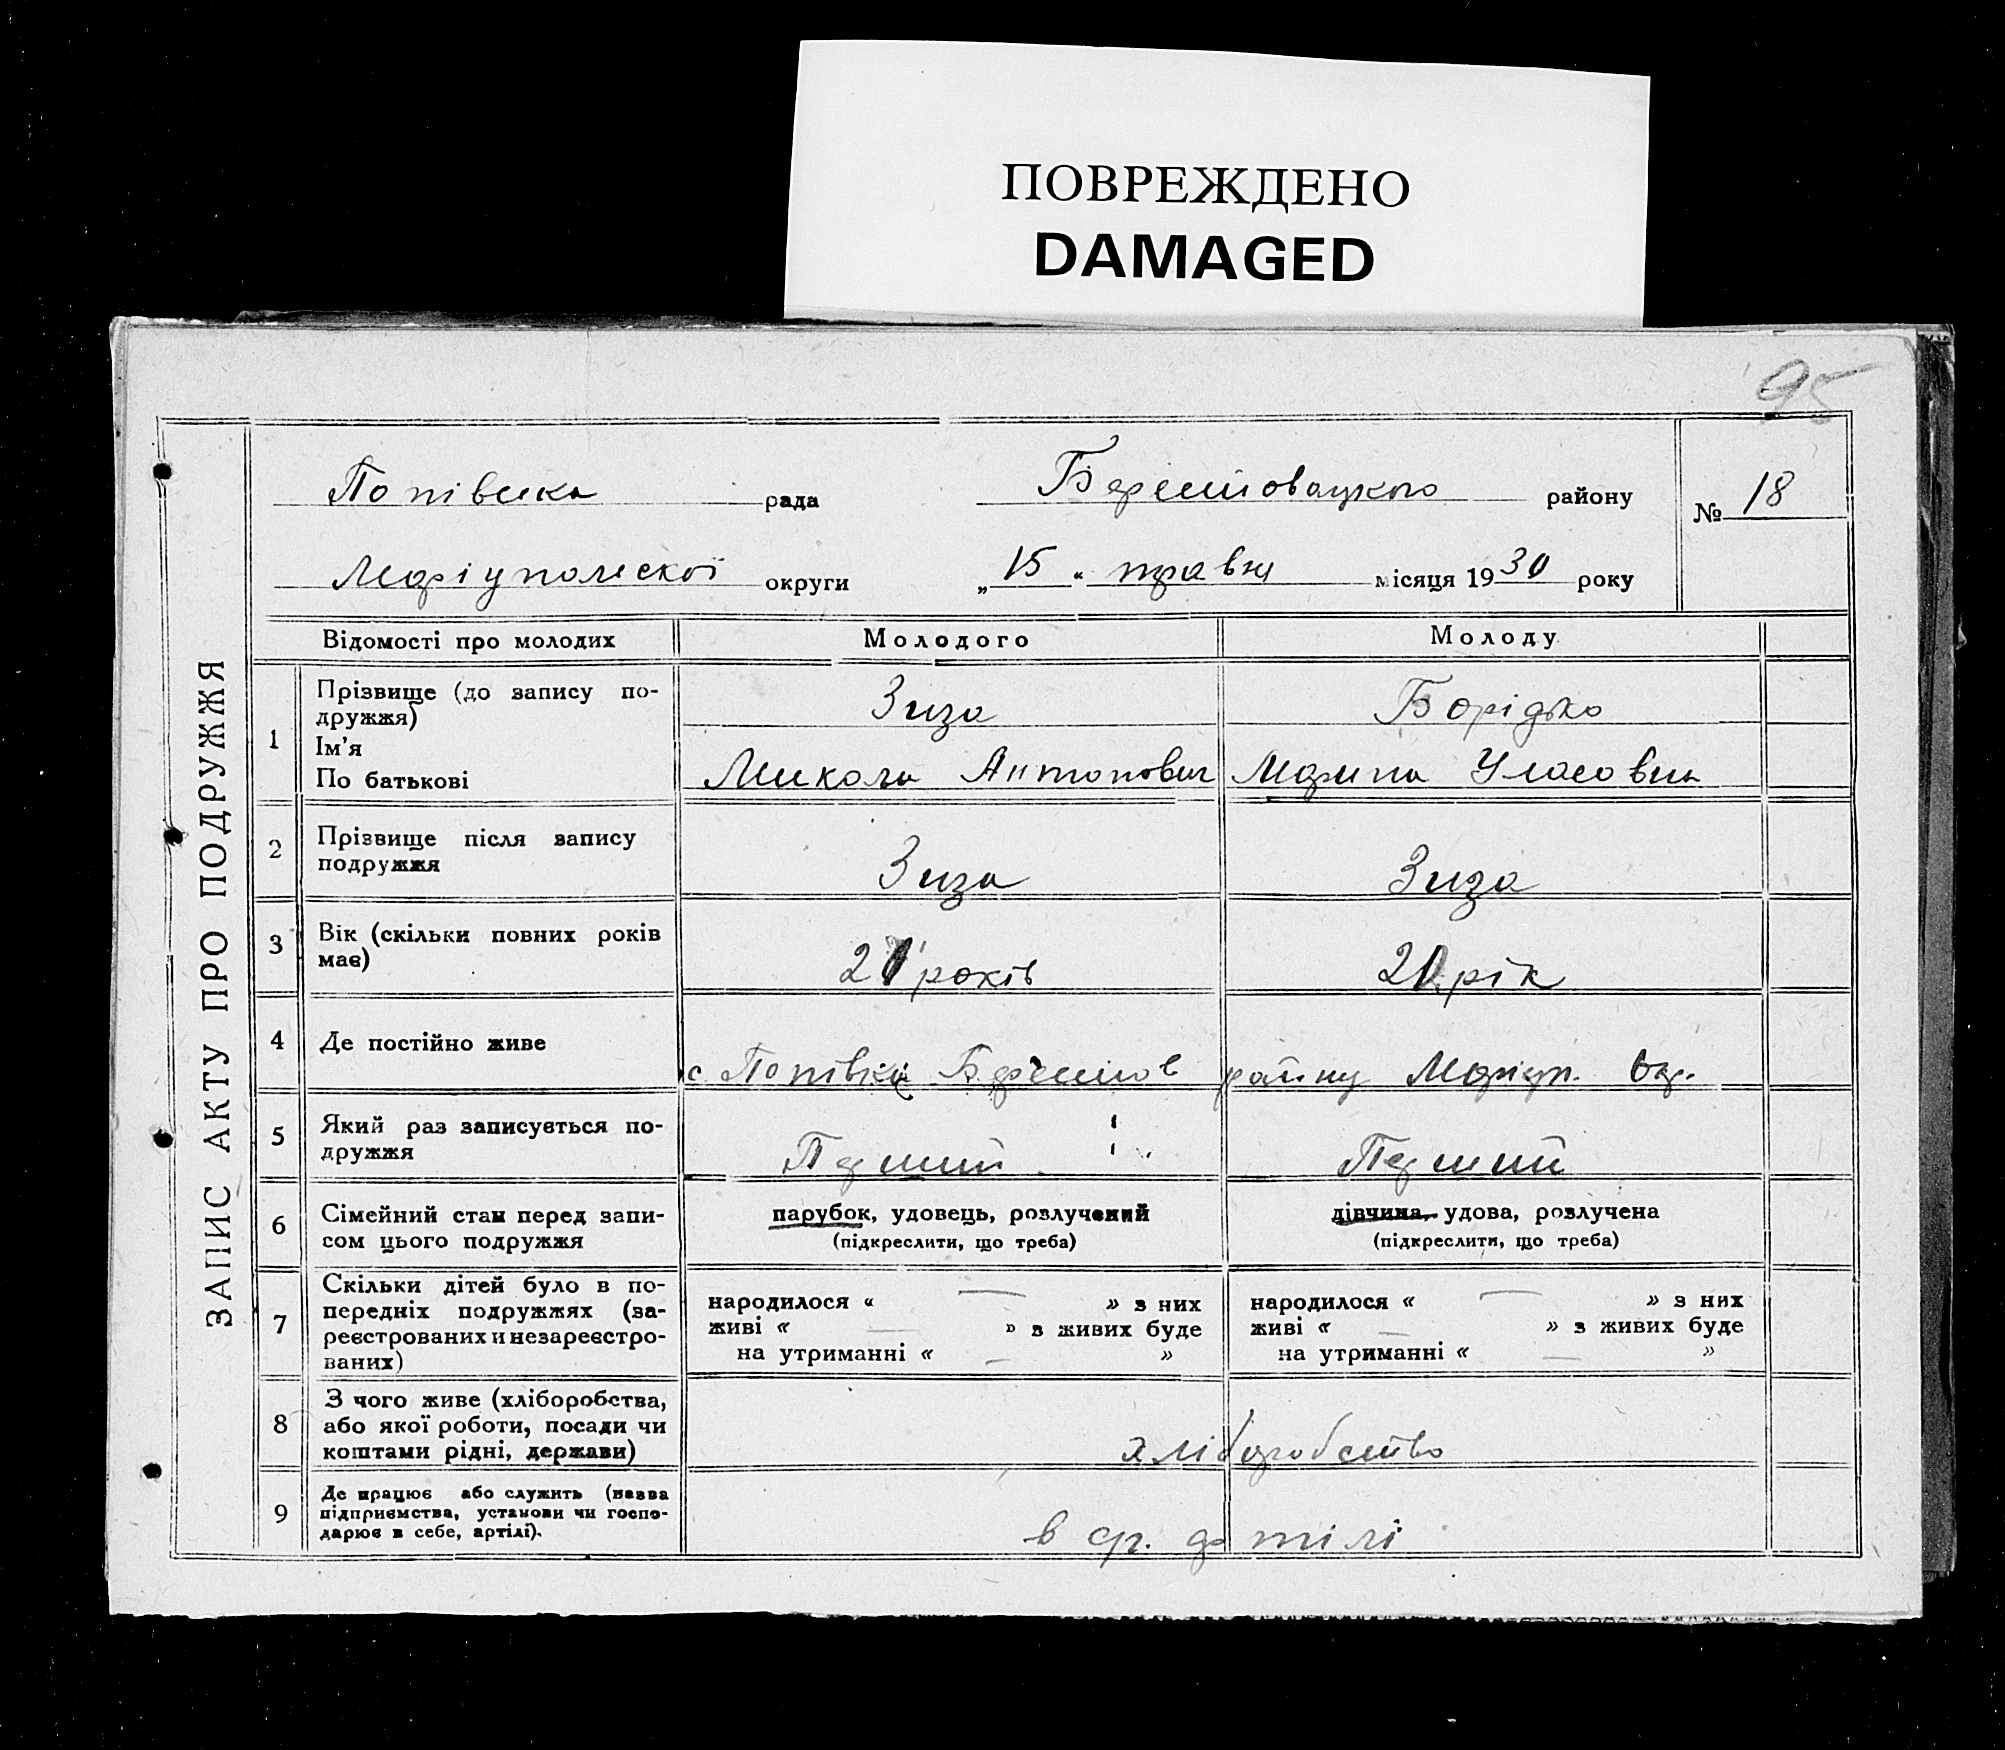 ПОВРЕЖДЕНО
DAMAGED
95
ЗАПИС АКТУ ПРО ПОДРУЖЖЯ
Попівска рада Берестовацького району № 18
Маріупольскої округи „15“ травня місяця 1930 року
Відомості про молодих Молодого Молоду
1 Прізвище (до запису по-
дружжя) Зиза Борідько
Ім'я
По батькові Микола Антонович Марина Уласовна
2 Прізвище після запису
подружжя Зиза Зиза
3 Вік (скільки повних років
має) 21 років 21 рік
4 Де постійно живе с. Попівка Берестов району Маріуп. Окр.
5 Який раз записується по-
дружжя Перший Перший
6 Сімейний стан перед запи-
сом цього подружжя
парубок, удовець, розлучений
(підкреслити, що треба)
дівчина, удова, розлучена
(підкреслити, що треба)
7 Скільки дітей було в по-
передніх подружжях (за-
реєстрованих и незареєстро-
ваних)
народилося « — » з них
живі « — » з живих буде
на утриманні « — »
народилося « — » з них
живі « — » з живих буде
на утриманні « — »
8 З чого живе (хліборобства,
або якої роботи, посади чи
коштами рідні, держави) хліборобство
9 Де працює або служить (назва
підприємства, установи чи госпо-
дарює в себе, артілі). в артілі